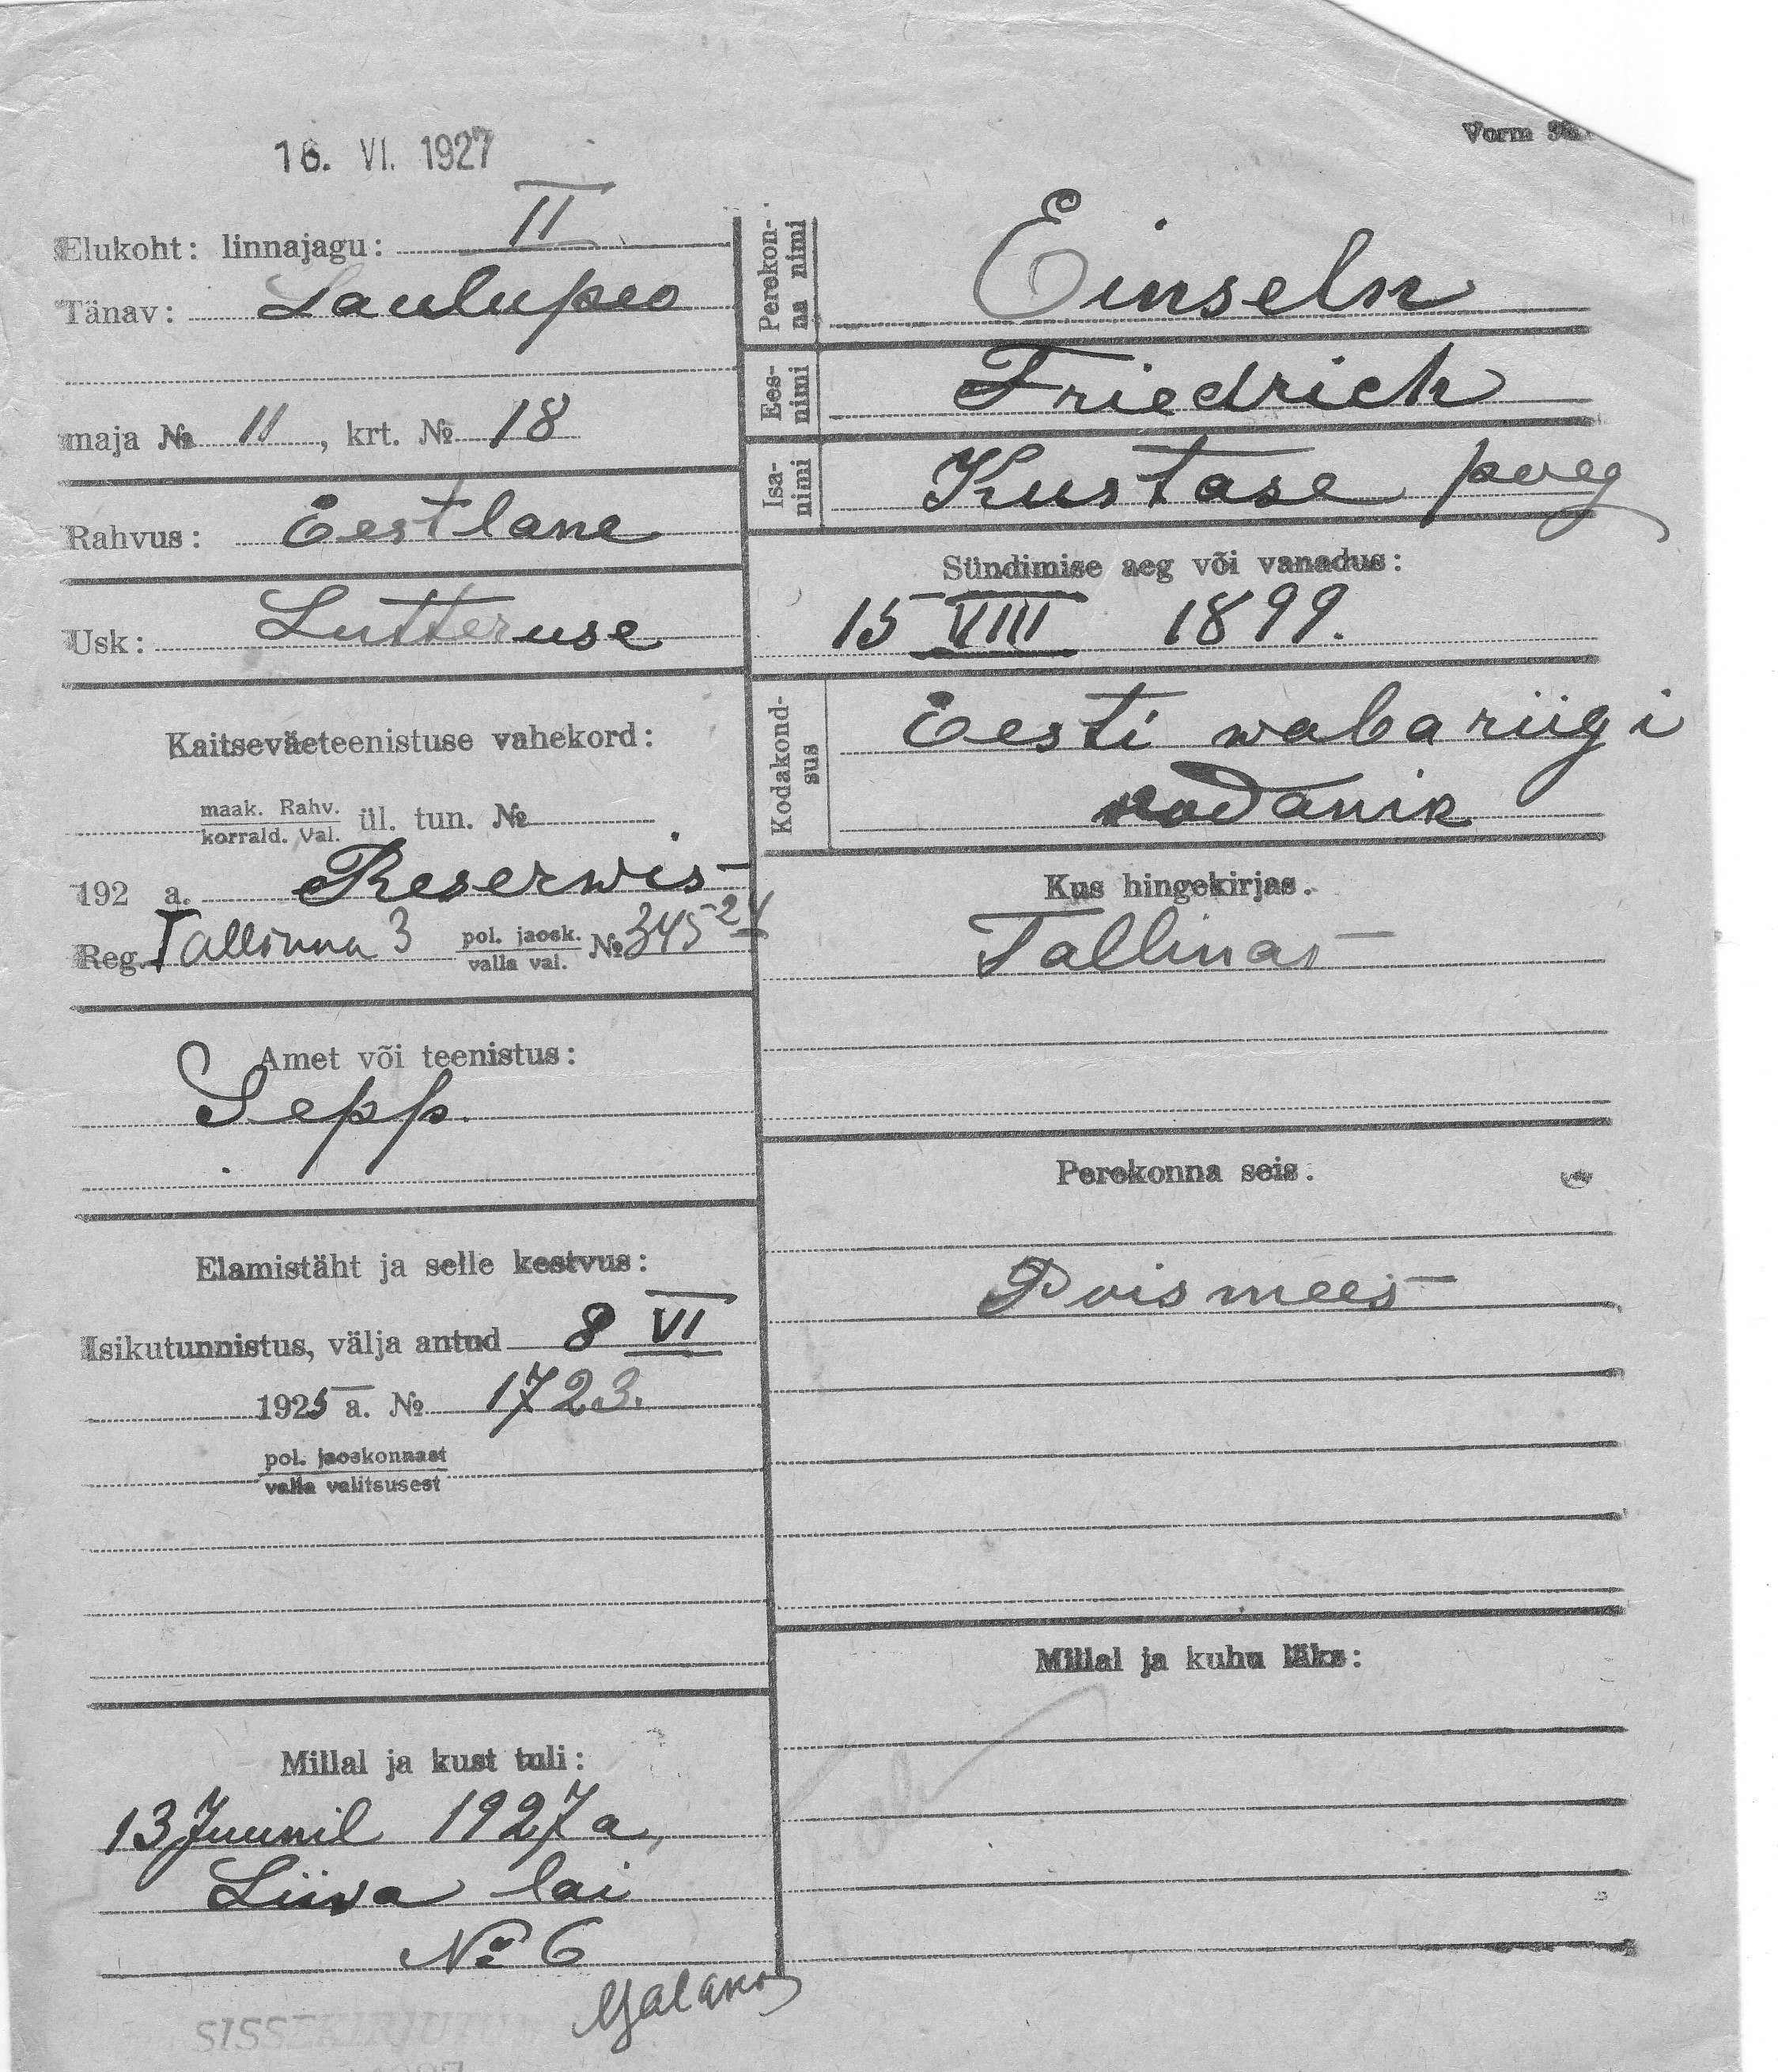 16. VI. 1927
Vorm
Elukoht: linnajagu: II
Tänav: Laulupeo
maja № 11, krt. № 18
Rahvus: Eestlane
Usk: Lutteruse
Kaitseväeteenistuse vahekord:
maak. Rahv.
korrald. Val. ül. tun. №
192 a. Reserwis
Reg. Tallinna 3 pol. jaosk.
valla val. № 345 24
Amet või teenistus:
Sepp.
Elamistäht ja selle kestvus:
Isikutunnistus, välja antud 8 VI
1925 a. № 1723.
pol. jaoskonnast
valla valitsusest
Millal ja kust tuli:
13 Juunil 1927 a,
Liiva lai
№ 6
SISSEKIRJUTUD
Perekon-
na nimi
Einseln
Ees-
nimi
Friedrich
Isa-
nimi
Kustase poeg
Sündimise aeg või vanadus:
15 VIII 1899.
Kodakond-
sus
Eesti wabariigi
kodanik
Kus hingekirjas.
Tallinas
Perekonna seis.
Poismees
Millal ja kuhu läks: